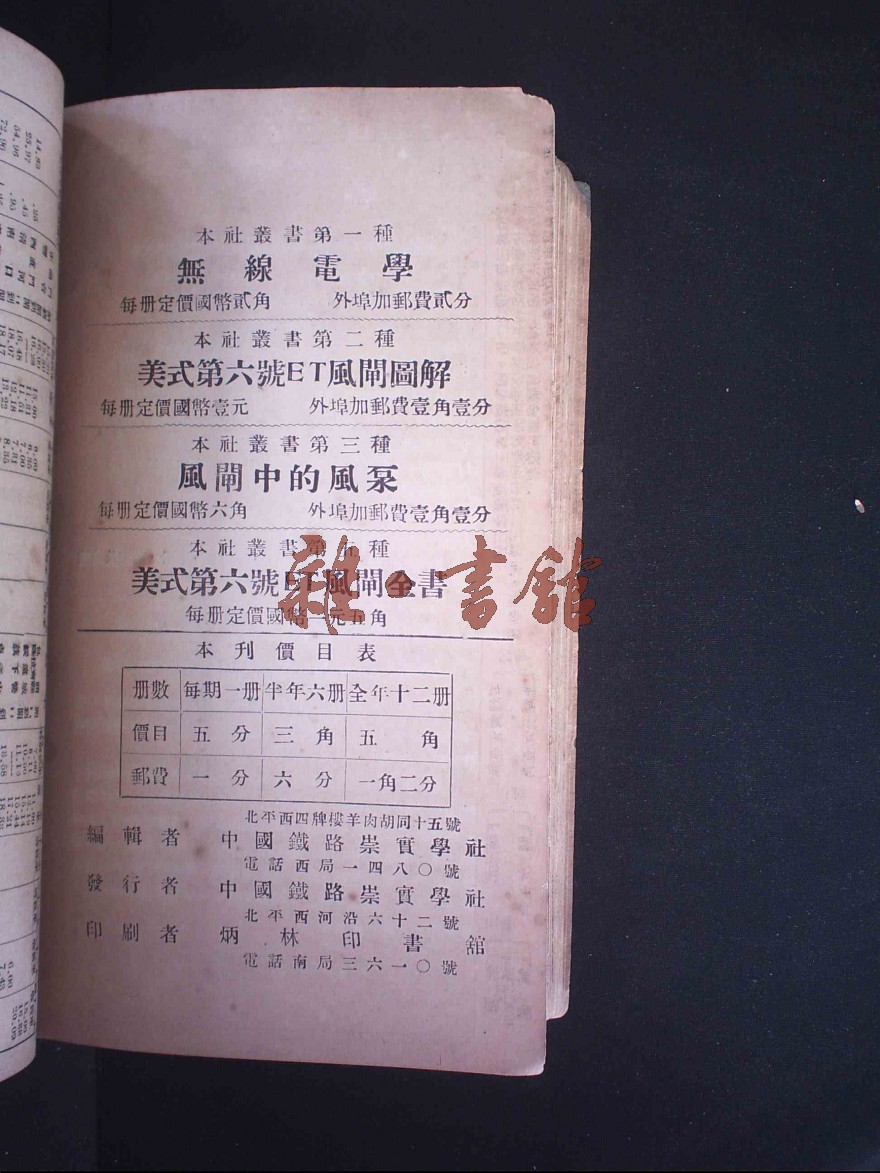 本社叢書第一種
無線電學
每册定價國幣貳角 外埠加郵費貳分
本社叢書第二種
美式第六號ET風閘圖解
每册定價國幣壹元 外埠加郵費壹角壹分
本社叢書第三種
風閘中的風泵
每册定價國幣六角 外埠加郵費壹角壹分
本社叢書第五種
美式第六號ET風閘全書
每册定價國幣一元五角
雜·書館
本刊價目表
册數 每期一册 半年六册 全年十二册
價目 五分 三角 五角
郵費 一分 六分 一角二分
北平西四牌樓羊肉胡同十五號
編輯者 中國鐵路崇實學社
電話西局一四八〇號
發行者 中國鐵路崇實學社
北平西河沿六十二號
印刷者 炳林印書舘
電話南局三六一〇號